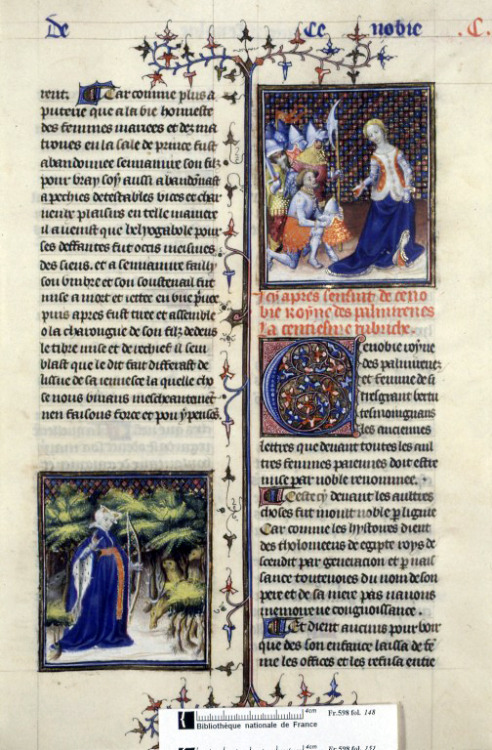 De
Ce
nobie
.C.
rent. Car comme plus a
puterie que a la vie honneste
des femmes mariees et dez ma
trones en la sale de prince fust
abandonnee semiamire son filz
pour vray soy aussi abandonnast
a pechies detestables vices et char
nieulx plaisirs en telle maniere
il avenist que helyogabole pour
ses deffautes fut occis
des siens. et a semiamire failly
son umbre et son soustenail fut
mise a mort et iettee en une
puis apres fust tiree et assemble
o la charongne de son filz dedens
le tibre mise et de rechief il sem
blast que le dit fait differast de
lissue de sa ieunesce la quelle cho
se nous humains meschantement
nen faisons force et pou y pensons.
Icy apres sensuit de ceno
bie royne des palmirenes
La centiesme rubriche.
Cenobie royne
des palmirenez
et femme de si
tresgrant vertu
tesmoingnans
les anciennes
lettres que devant toutes les aul
tres femmes paiennes doit estre
mise par noble renommee.
Ceste cy devant les aultres
choses fut moult noble p lignie
Car comme les hystoires dient
des tholomeeus de egipte roys de
scendit par generacion et p nais
sance touteuoies du nom de son
pere et de sa mere pas nauons
memoire ne congnoissance.
Et dient aucuns pour voir
que des son enfance laissa de fe
me les offices et les refusa entie
4cm
Bibliothèque nationale de France
Fr.598 fol. 148
4cm
Fr.598 fol. 151